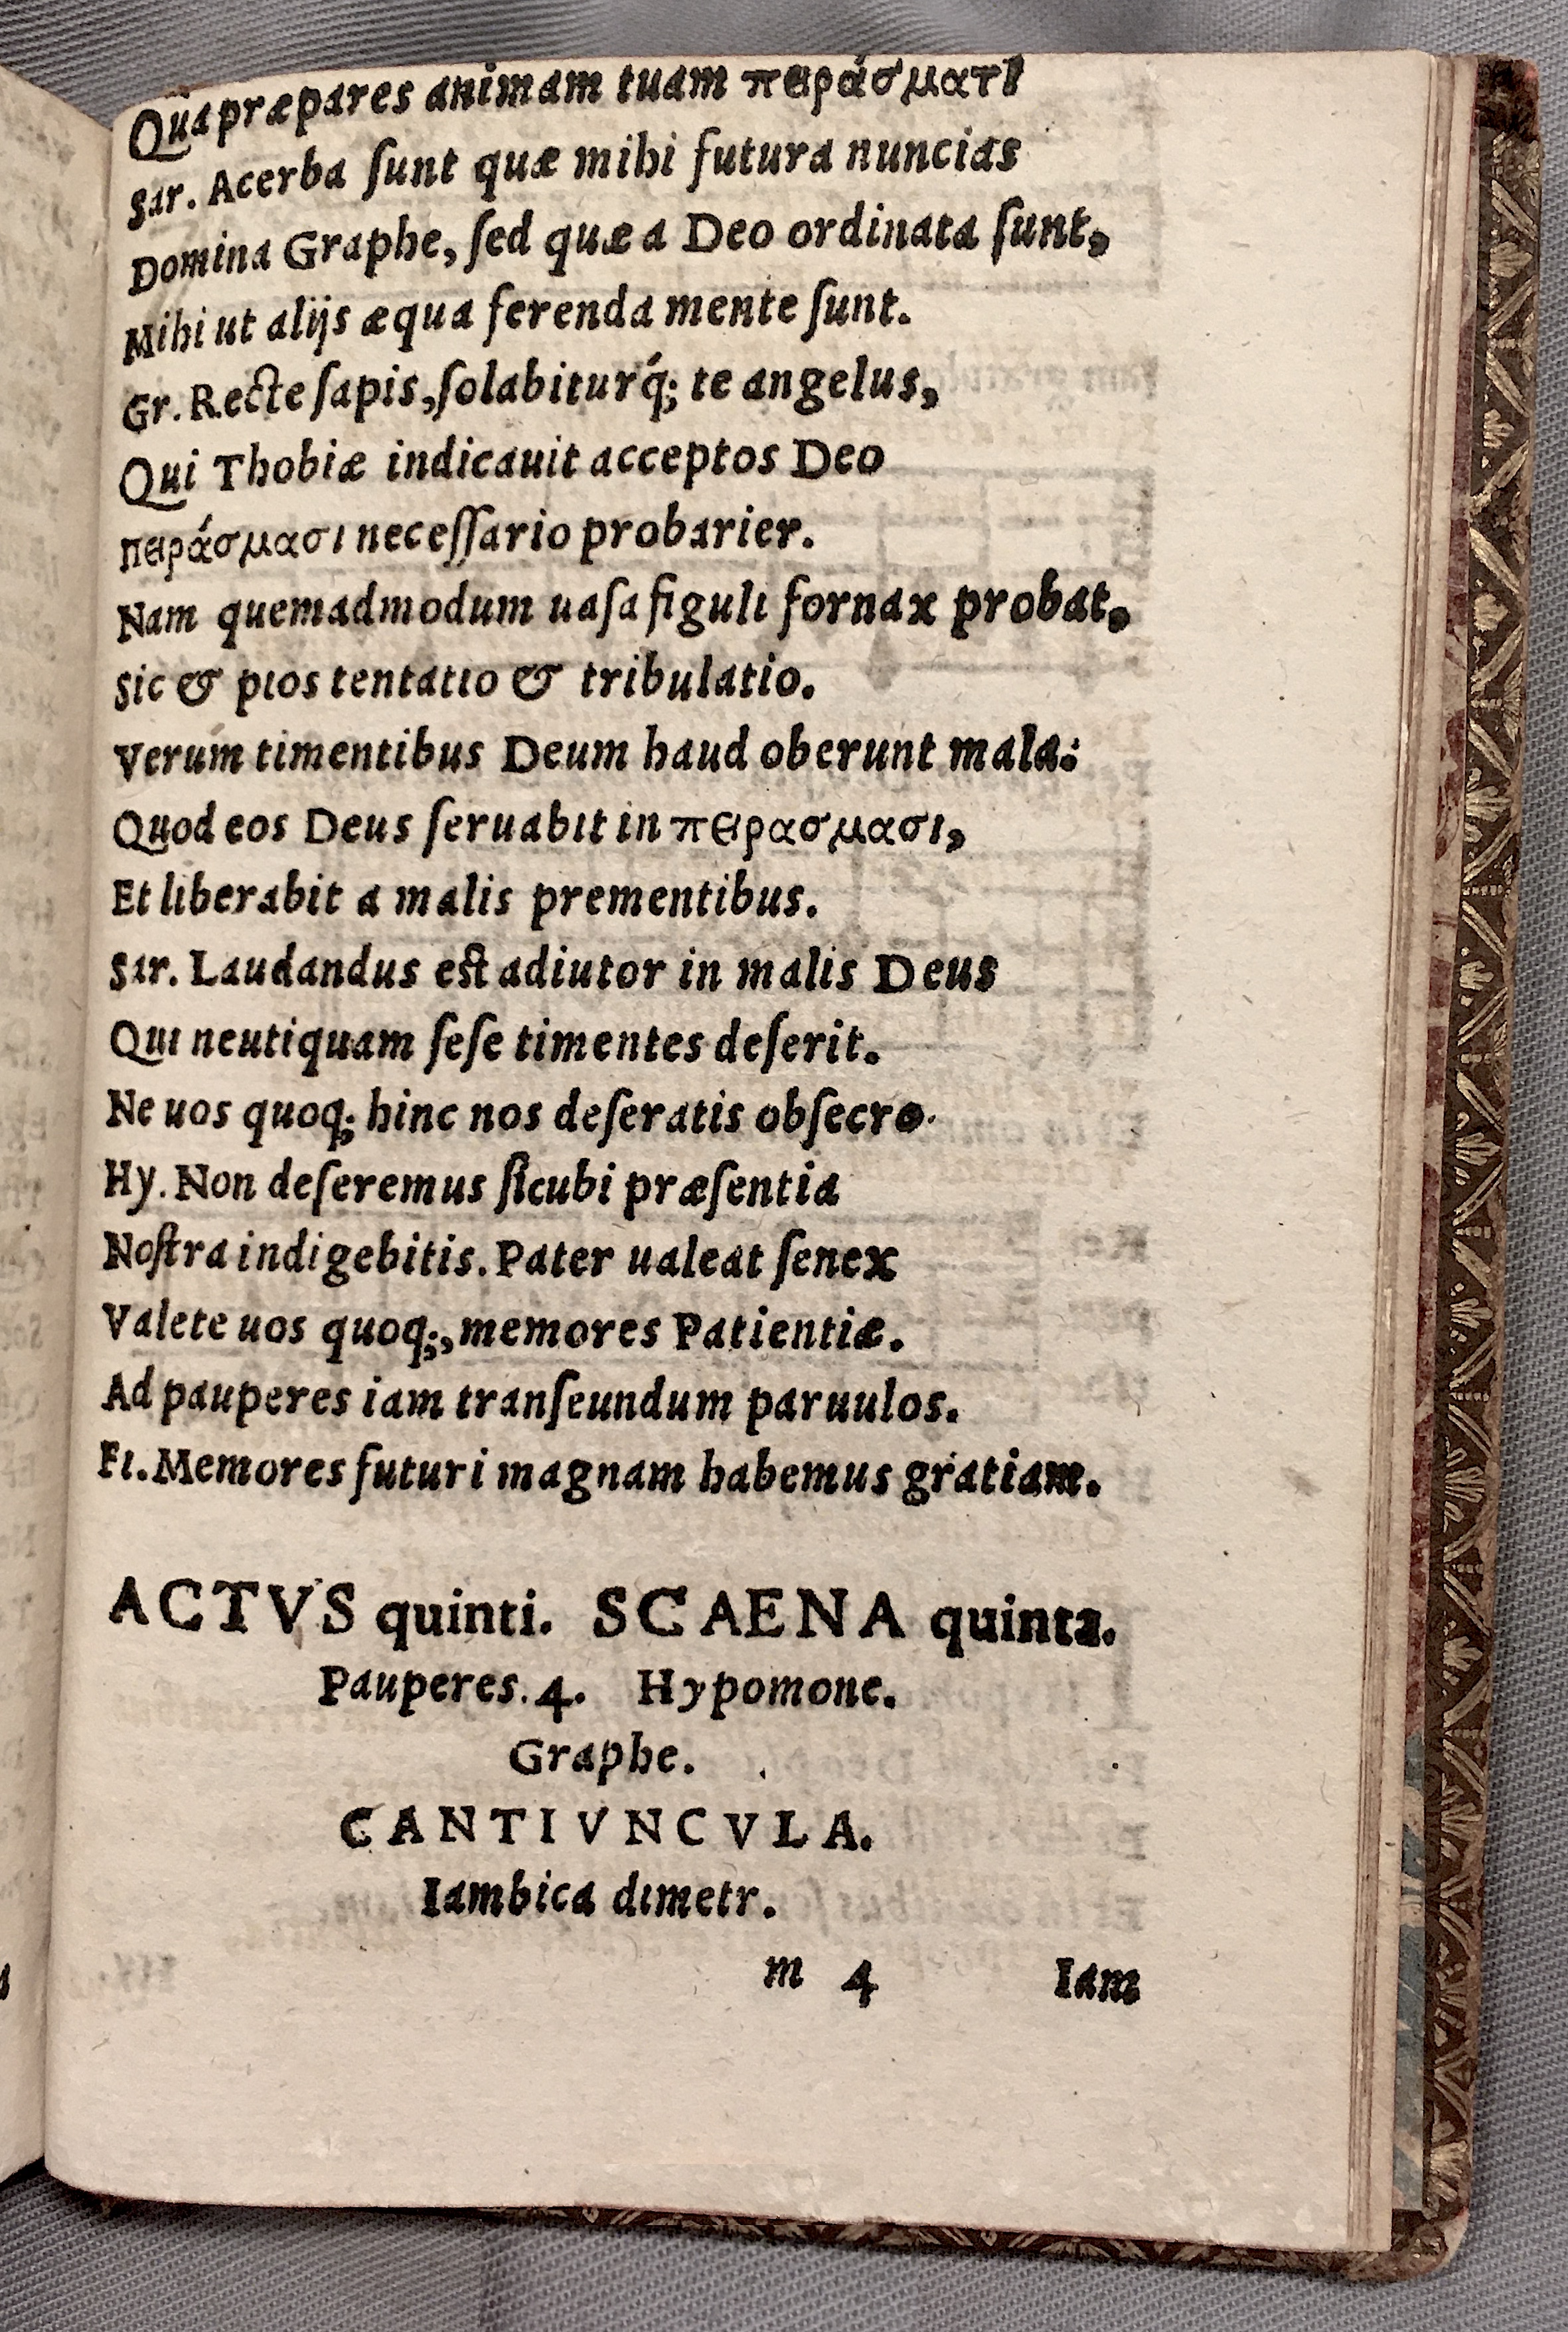 Qua præpares animam tuam πειράσματι
Sar. Acerba ſunt quæ mihi futura nuncias
Domina Graphe, ſed quæ a Deo ordinata ſunt,
Mihi ut alijs æqua ferenda mente ſunt.
Gr. Recte ſapis, ſolabiturq́; te angelus,
Qui Thobiæ indicauit acceptos Deo
πειράσμασι neceſſario probarier.
Nam quemadmodum uaſa figuli fornax probat,
Sic & pios tentatio & tribulatio.
Verum timentibus Deum haud oberunt mala:
Quod eos Deus ſeruabit in πειρασμασι,
Et liberabit a malis prementibus.
Sar. Laudandus eſt adiutor in malis Deus
Qui neutiquam ſeſe timentes deſerit.
Ne uos quoq; hinc nos deſeratis obſecro.
Hy. Non deſeremus ſicubi præſentia
Noſtra indigebitis. Pater ualeat ſenex
Valete uos quoq;, memores Patientiæ.
Ad pauperes iam tranſeundum paruulos.
Fi. Memores futuri magnam habemus gratiam.
ACTVS quinti. SCAENA quinta.
Pauperes. 4. Hypomone.
Graphe.
CANTIVNCVLA.
Iambica dimetr.
m 4 Iam